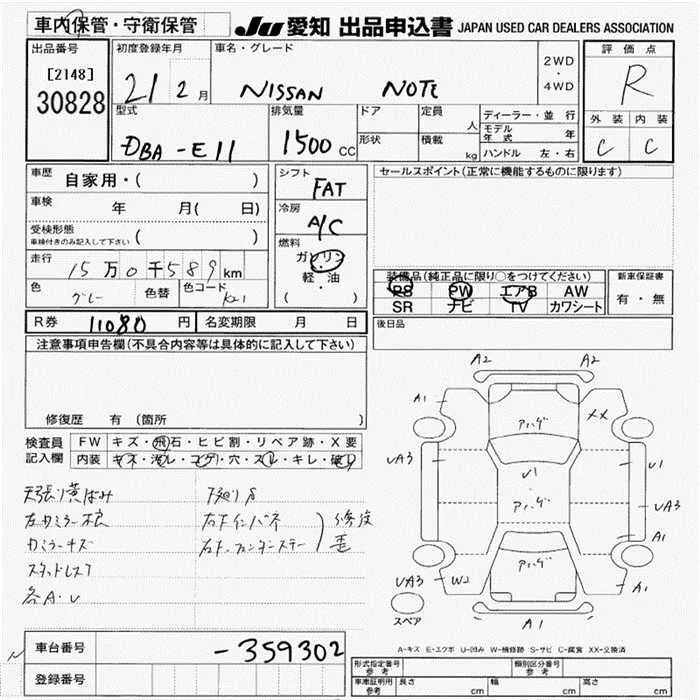 車内保管・守衛保管
JU 愛知 出品申込書 JAPAN USED CAR DEALERS ASSOCIATION
出品番号
[2148]
30828
初度登録年月
21 2月
車名・グレード
NISSAN NOTE
2WD
・
4WD
評価点
R
外装 内装
C C
型式
DBA-E11
排気量
1500 CC
ドア
形状
定員
人
積載
kg
ディーラー・並行
モデル年式 年
ハンドル 左・右
車歴
自家用・( )
車検
年 月( 日)
受検形態
車検付きのみ記入して下さい ( )
走行
15万0千589km
色
グレー
色替
色コード
K21
シフト
FAT
冷房
A/C
燃料
ガソリン
軽・油
( )
セールスポイント(正常に機能するものに限ります)
装備品(純正品に限り○をつけてください)
PS PW エアB AW
SR ナビ TV カワシート
新車保証書
有・無
後日品
R券 11080 円
名変期限 月 日
注意事項申告欄(不具合内容等は具体的に記入して下さい)
修復歴 有 (箇所 )
検査員
記入欄
FW キズ・飛石・ヒビ割・リペア跡・X要
内装 キズ・汚レ・コゲ・穴・スレ・キレ・破レ
天張り黄ばみ
左カミラー根
カミラーキズ
スタッドレス7
各A・U
下廻りS
右Fインパネ
右F.フェンダーステー
修復歪
A2 A2
A1
XX
アハゲ
UA3
U1
U1
アハゲ
UA3
A1
アハゲ
UA3 W2
A1
スペア
A1
A-キズ E-エクボ U-凹み W-補修跡 S-サビ C-腐食 XX-交換済
車台番号
-359302
登録番号
形式指定番号
参考
類別区分番号
参考
車庫証明用
参考
長さ cm
幅 cm
高さ cm